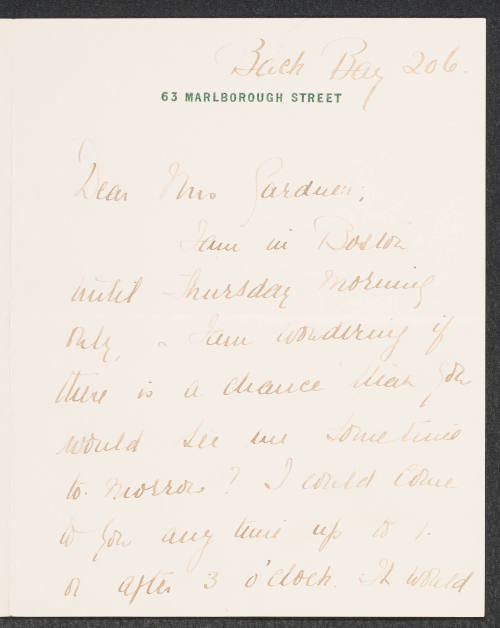 Back Bay 206.
63 MARLBOROUGH STREET
Dear Mrs Gardner,
I am in Boston
until Thursday morning
only, & I am wondering if
there is a chance that you
would see me sometime
to-morrow? I could come
to you any time up to 1.
or after 3 o'clock. It would